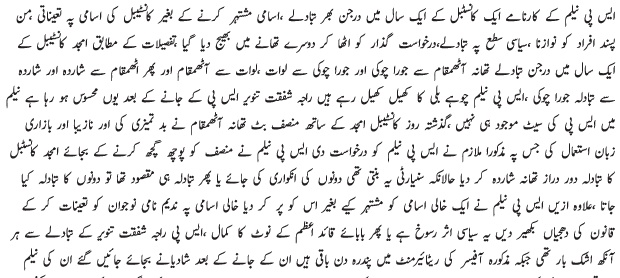 ایس پی نیلم کے کارنامے ایک کانسٹبل کے ایک سال میں درجن بھر تبادلے ،اسامی مشتہر کرنے کے بغیر کانسٹیبل کی اسامی پہ تعیناتی ،من
پسند افراد کو نوازنا ،سیاسی سطح پہ تبادلے،درخواست گذار کو اٹھا کر دوسرے تھانے میں بھیج دیا گیا ،تفصیلات کے مطابق امجد کانسٹیبل کے
ایک سال میں درجن تبادلے تھانہ آٹھمقام سے جورا چوکی اور جورا چوکی سے لوات ،لوات سے آٹھمقام اور پھر اٹھمقام سے شاردہ اور شاردہ
سے تبادلہ جورا چوکی ،ایس پی نیلم چوہے بلی کا کھیل کھیل رہے ہیں راجہ شفقت تنویر ایس پی کے جانے کے بعد یوں محسوس ہو رہا ہے نیلم
میں ایس پی کی سیٹ موجود ہی نہیں،گذشتہ روز کانسٹیبل امجد کے ساتھ منصف بٹ تھانہ آٹھمقام نے بد تمیزی کی اور نازیبا اور بازاری
زبان استعمال کی جس پہ مذکورا ملازم نے ایس پی نیلم کو درخواست دی ایس پی نیلم نے منصف کو پوچھ گچھ کرنے کے بجائے امجد کانسٹبل
کا تبادلہ دور دراز تھانہ شاردہ کر دیا حالانکہ سنیارٹی یہ بنتی تھی دونوں کی انکوائری کی جائے یا پھر تبادلہ ہی مقصود تھا تو دونوں کا تبادلہ کیا
جاتا ،علاوہ ازیں ایس پی نیلم نے ایک خالی اسامی کو مشتہر کیے بغیر اس کو پر کر دیا خالی اسامی پہ ندیم نامی نوجوان کو تعینات کر کے
قانون کی دھجیاں بکھیر دیں یہ سیاسی اثر رسوخ ہے یا پھر بابائے قائد اعظم کے نوٹ کا کمال ،ایس پی راجہ شفقت تنویر کے تبادلے سے ہر
آنکھ اشک بار تھی جبکہ مذکورہ آفیسر کی ریٹائیرمنٹ میں پندرہ دن باقی ہیں ان کے جانے کے بعد شادیانے بجائے جائیں گئے ان کی نیلم